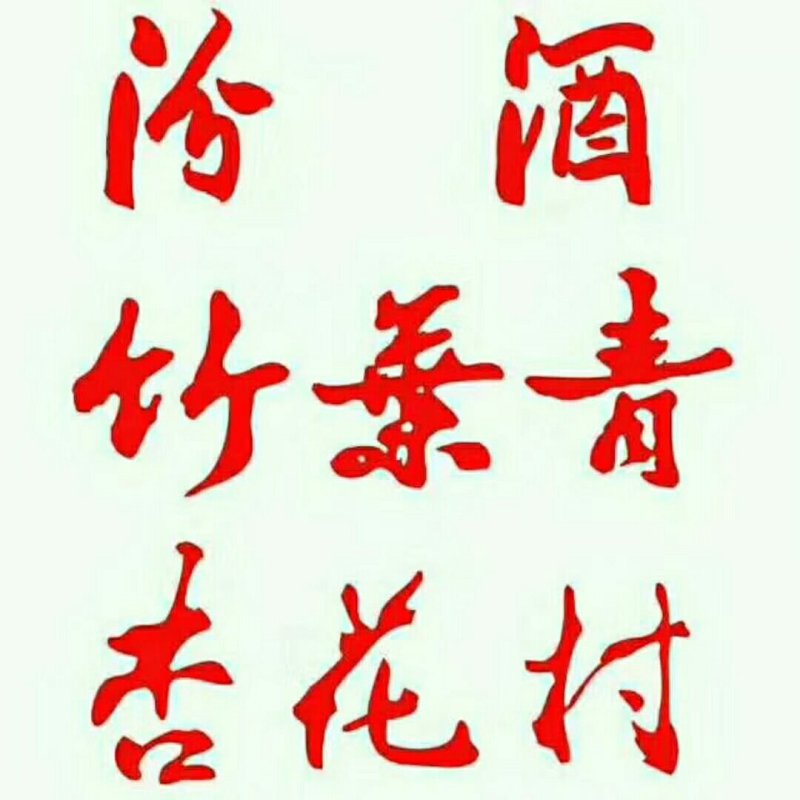 汾酒
竹葉青
杏花村